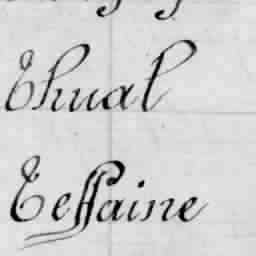 Thual
Teſſaine